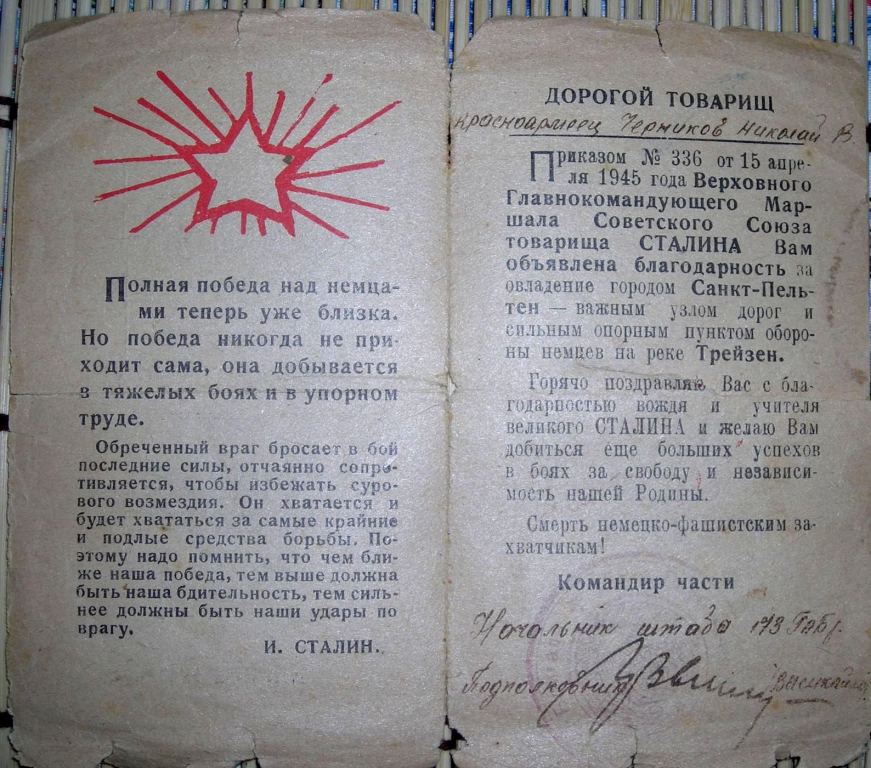 Полная победа над немца-
ми теперь уже близка.
Но победа никогда не при-
ходит сама, она добывается
в тяжелых боях и в упорном
труде.
Обреченный враг бросает в бой
последние силы, отчаянно сопро-
тивляется, чтобы избежать суро-
вого возмездия. Он хватается и
будет хвататься за самые крайние
и подлые средства борьбы. По-
этому надо помнить, что чем бли-
же наша победа, тем выше должна
быть наша бдительность, тем силь-
нее должны быть наши удары по
врагу.
И. СТАЛИН.
ДОРОГОЙ ТОВАРИЩ
красноармеец Черников Николай В.
Приказом № 336 от 15 апре-
ля 1945 года Верховного
Главнокомандующего Мар-
шала Советского Союза
товарища СТАЛИНА Вам
объявлена благодарность за
овладение городом Санкт-Пель-
тен — важным узлом дорог и
сильным опорным пунктом оборо-
ны немцев на реке Трейзен.
Горячо поздравляю Вас с бла-
годарностью вождя и учителя
великого СТАЛИНА и желаю Вам
добиться еще больших успехов
в боях за свободу и независи-
мость нашей Родины.
Смерть немецко-фашистским за-
хватчикам!
Командир части
Начальник штаба 173
Подполковник